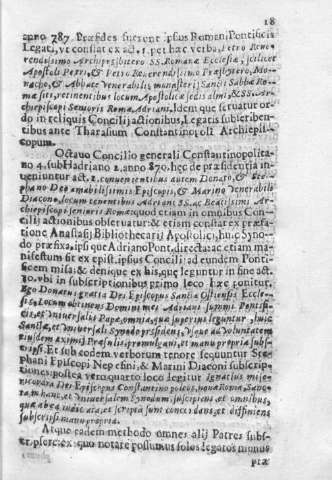 18
anno 787. Præsides fuerunt ipsus Romani Pontificis
Legati, vt constat ex act. 1. per hæc verba, Petro Reue-
rendissimo Archipresbitero SS. Romanæ Ecclesiæ, scilicet
Apostoli Petri, & Petro Reuerendissimo Præsbytero, Mo-
nacho, & Abbate venerabilis monasterij Sancti Sabbæ Ro-
mæ siti, retinentibus locum Apostolicæ sedis almi, & SS. Ar-
chiepiscopi Senioris Romæ Adriani, Idem que seruatur or-
do in reliquis Concilij actionibus, Legatis subscriben-
tibus ante Tharasium Constantinopoli Archiepis-
copum.
Octauo Concilio generali Constantinopolita-
no 4. sub Hadriano 2. anno 870. hęc de præsidentia in-
ueniuntur act. 1. conuenientibus autem Donato, & Ste-
phano Deo amabilissimis Episcopis, & Marino Venerabili
Diacono, locum tenentibus Adriani SS. ac Beatissimi Ar-
chiepiscopi senioris Romæ: quod etiam in omnibus Con-
cilij actionibus obseruatur: & etiam constat ex præfa-
tione Anastasij Bibliothecarij Apostolici, huic Syno-
do præfixa, ipsique Adriano Pont. directa: ac etiam ma-
nifestum fit ex epist. ipsius Concilij ad eundem Ponti-
ficem misa: & denique ex his, quę leguntur in fine act.
10. vbi in subscriptionibus primo loco hæc ponitur.
Ego Donatus gratia Dei Episcopus Sanctæ Ostiensis Eccle-
siæ, locum obtinens Domini mei Adriani summi Pontifi-
cis, et Vniuersalis Papæ, omnia, quæ superius leguntur huic
Sanctæ, et Vniuersali Synodo præsidens, vsque ad voluntatem
eiusdem eximij Præsulis promulgani, et manu propria subs-
cripsi. Et sub eodem verborum tenore sequuntur Ste-
phani Episcopi Nepesini, & Marini Diaconi subscrip-
tiones: postea vero quarto loco legitur Ignatius mise-
ricordia Dei Episcopus Constantinopoleos, nouæ Romæ, Sanc-
tam hanc, et Vniuersalem Synodum suscipiens, et omnibus,
quæ ab ea iudicata, et scripta sunt concordans, et diffiniens
subscripsi manu propria.
Atque eadem methodo omnes alij Patres subs-
cripsere: ex quo notare possumus solos legatos munus
præ